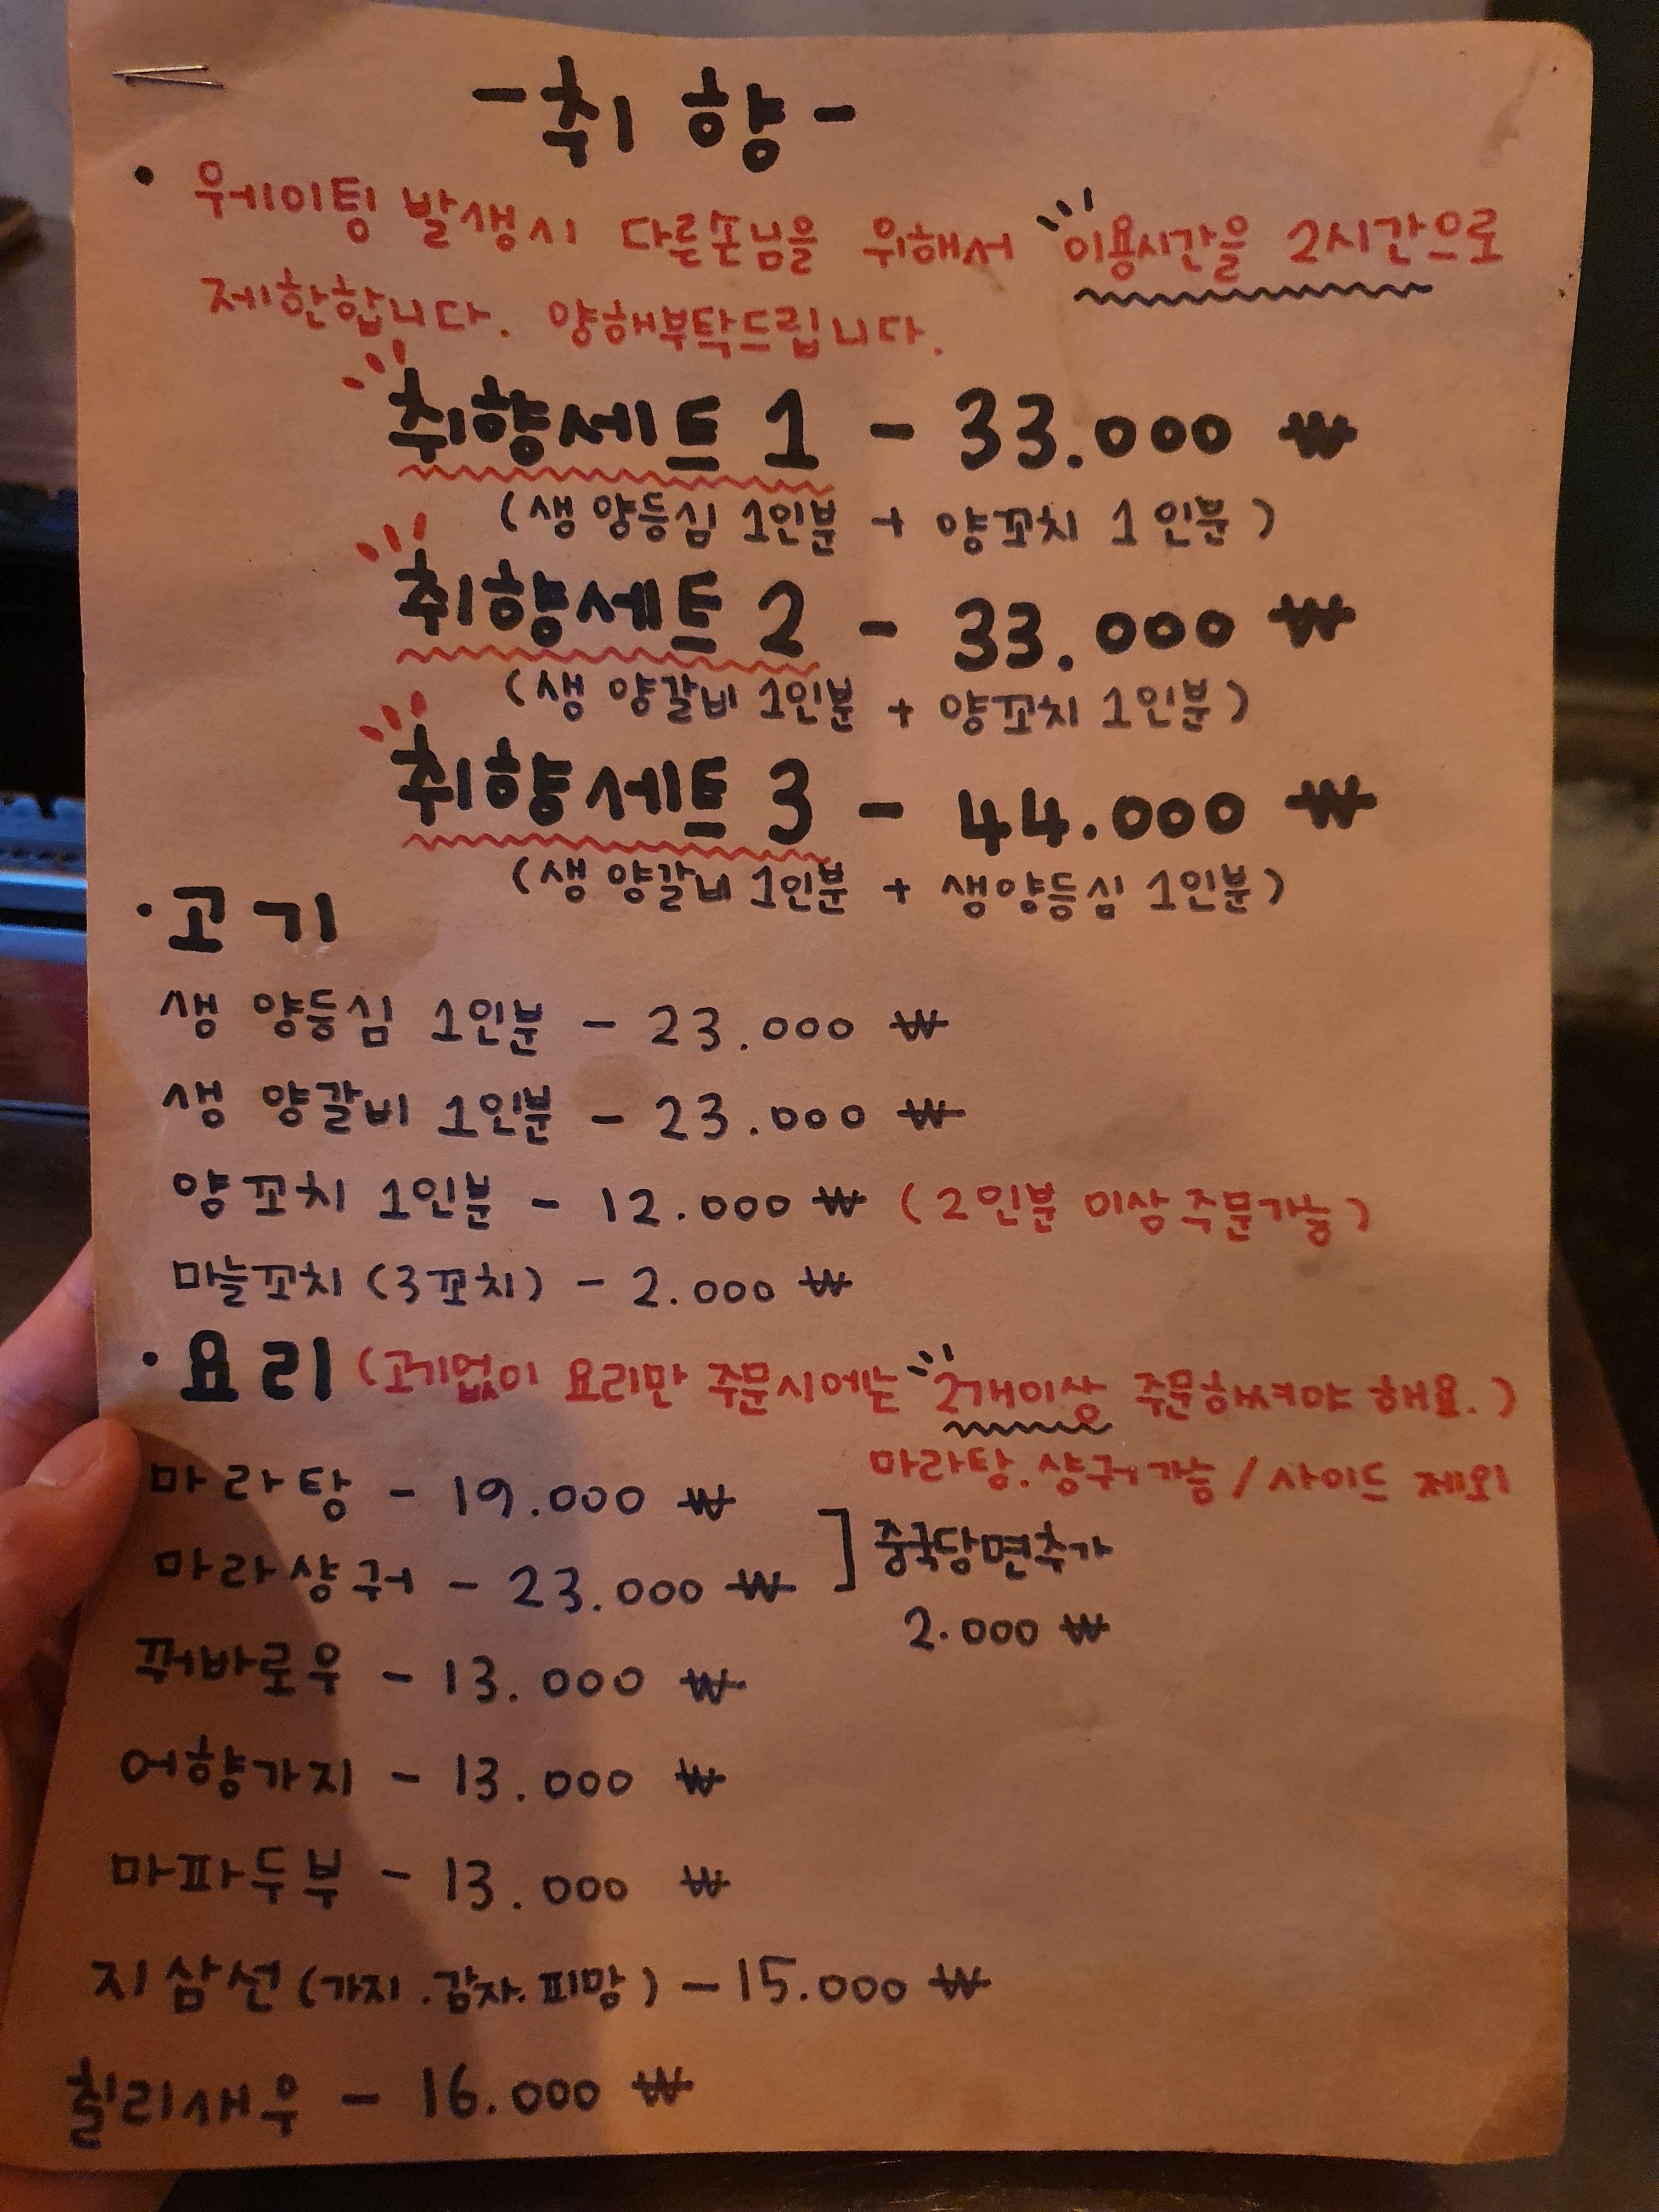 -취 향-
• 웨이팅 발생시 다른손님을 위해서 이용시간을 2시간으로
제한합니다. 양해부탁드립니다.
취향세트 1 - 33.000 ₩
(생 양등심 1인분 + 양꼬치 1인분)
취향세트 2 - 33.000 ₩
(생 양갈비 1인분 + 양꼬치 1인분)
취향세트 3 - 44.000 ₩
(생 양갈비 1인분 + 생양등심 1인분)
·고기
생 양등심 1인분 - 23.000 ₩
생 양갈비 1인분 - 23.000 ₩
양꼬치 1인분 - 12.000 ₩ (2인분 이상 주문가능)
마늘꼬치 (3꼬치) - 2.000 ₩
·요리 (고기없이 요리만 주문시에는 2개이상 주문하셔야 해요.)
마라탕.샹궈가능 / 사이드 제외
마라탕 - 19.000 ₩
마라샹궈 - 23.000 ₩ ] 중국당면추가
2.000 ₩
꿔바로우 - 13.000 ₩
어향가지 - 13.000 ₩
마파두부 - 13.000 ₩
지삼선 (가지.감자.피망) - 15.000 ₩
칠리새우 - 16.000 ₩